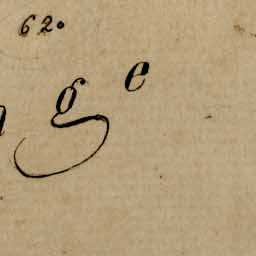 62.
g e